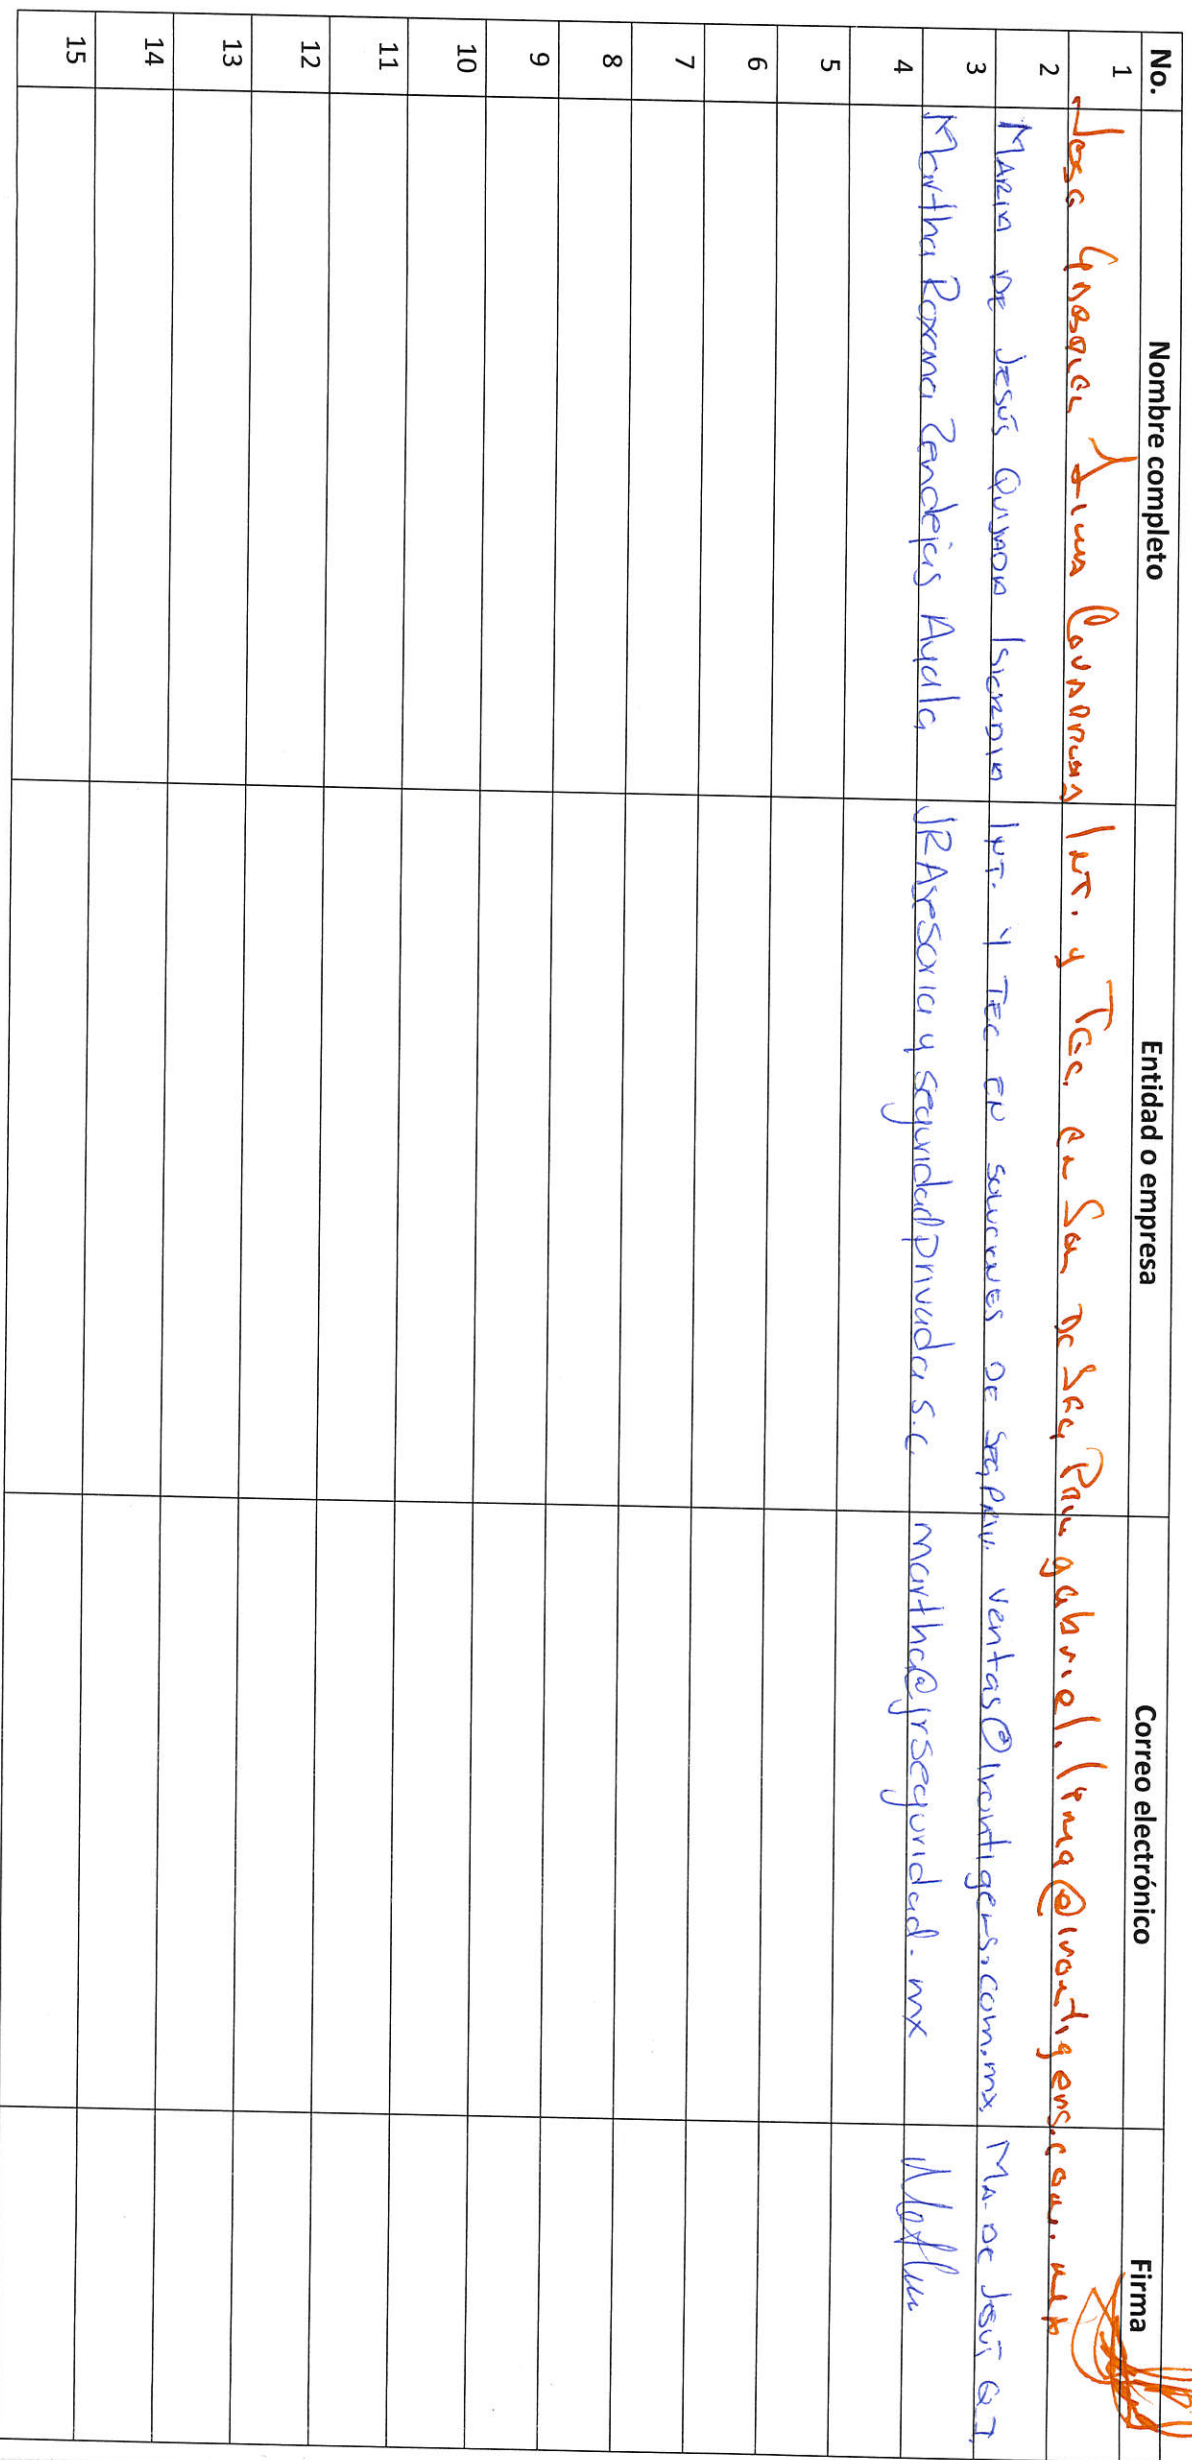 No. Nombre completo Entidad o empresa Correo electrónico Firma
1 Jose Gabriel Lima Covarrubias Int. y Tec. en Sol De Seg Priv gabriel.lima@irontigers.com.mx
2 MARIA DE JESÚS QUIJADA INT. Y TEC EN SOLUCIONES DE SEG PRIV. ventas@irontigers.com.mx MA. DE JESÚS Q.
3 Martha Roxana Zendejas Ayala JR Asesoria y seguridad privada s.c martha@jrseguridad.mx
4
5
6
7
8
9
10
11
12
13
14
15